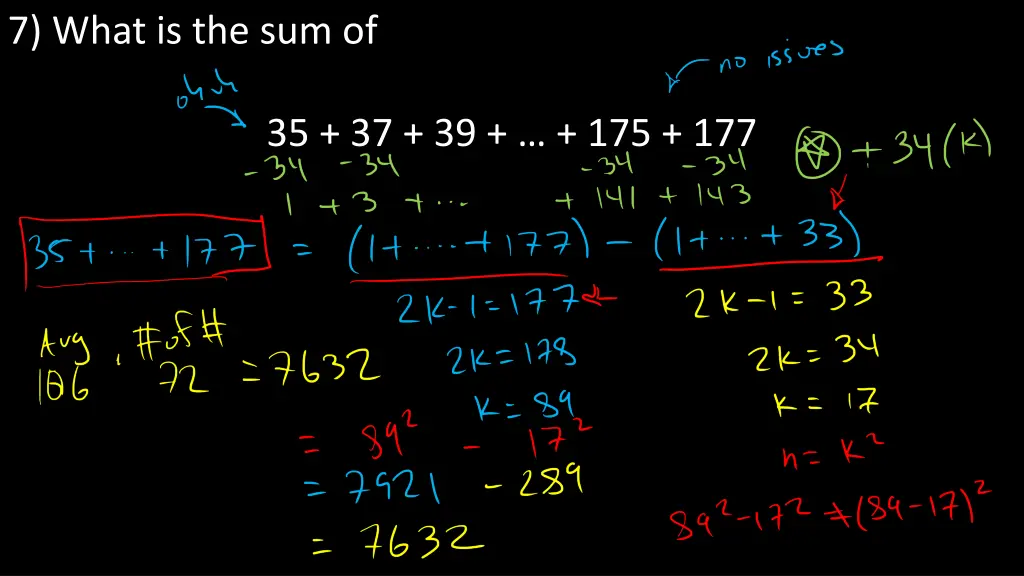 7) What is the sum of
no issues
uh uh
35 + 37 + 39 + … + 175 + 177
-34 -34 -34 -34
☆ + 34(k)
1 + 3 + ... + 141 + 143
35 + ... + 177 = (1 + .... + 177) - (1 + ... + 33)
2k-1 = 177 2k-1 = 33
Avg . # of #
106 72 = 7632
2k = 178 2k = 34
k = 89 k = 17
= 89² - 17² n = k²
= 7921 - 289
89² - 17² ≠ (89-17)²
= 7632